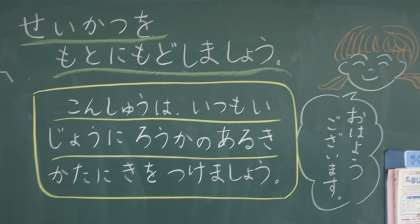 せいかつを
もとにもどしましょう。
こんしゅうは、いつもい
じょうに ろうかのあるき
かたに きを つけましょう。
おはよう
ございます。